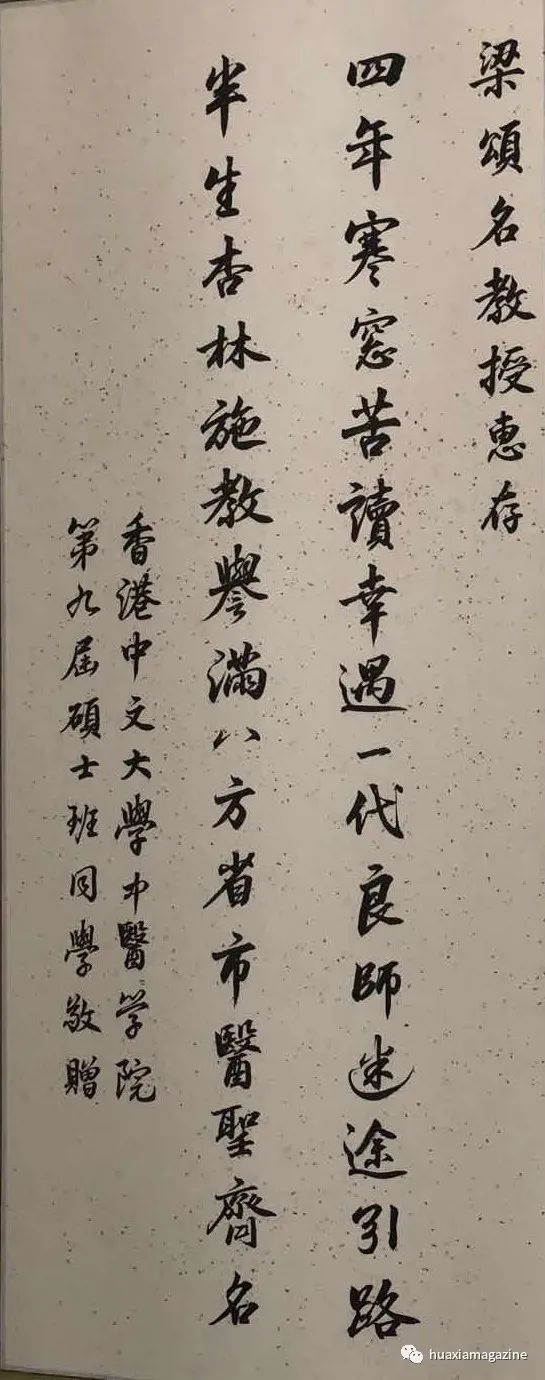 梁頌名教授惠存
四年寒窓苦讀幸遇一代良師迷途引路
半生杏林施教譽滿八方省市醫聖齊名
香港中文大學中醫学院
第九屆碩士班同學敬贈
huaxiamagazine